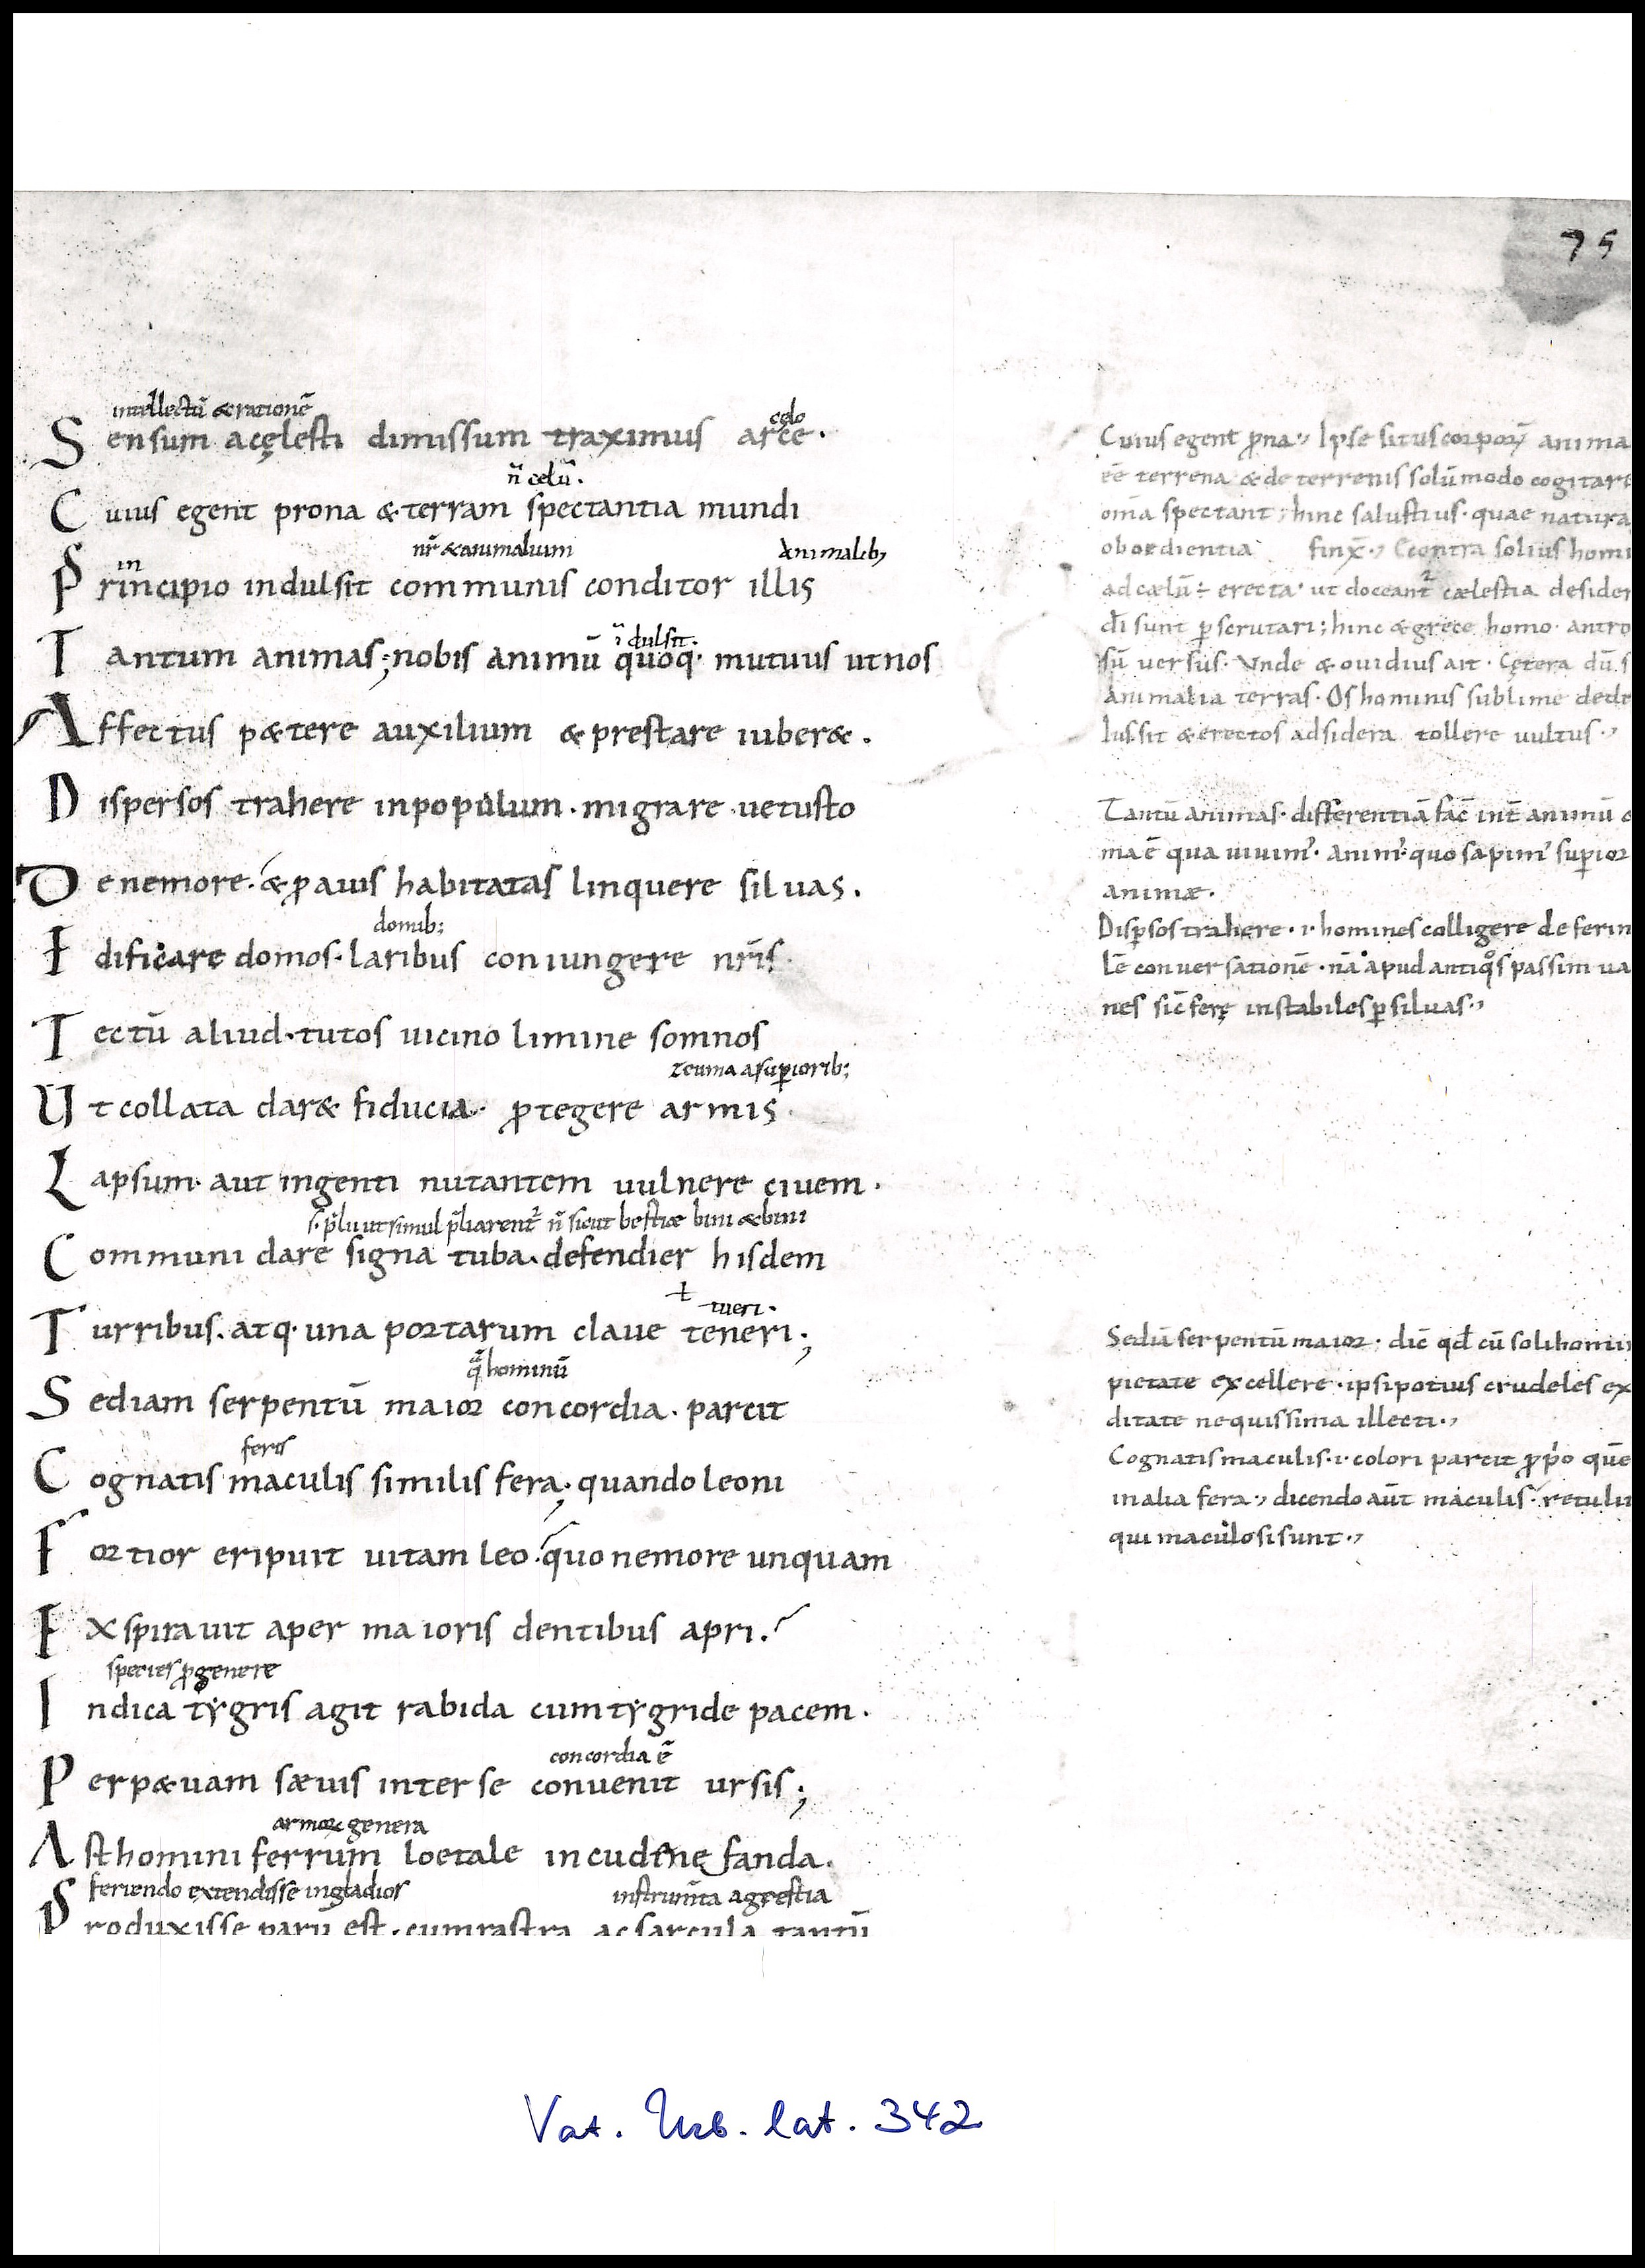 75
intellectū & rationē celo
Sensum acęlesti dimissum traximus arce·
n̄ celū·
Cuius egent prona & terram spectantia mundi
in nr̄ & animalium Animalib;
Principio indulsit communis conditor illis
ī dulsit·
Tantum animas; nobis animū quoq· mutuus ut nos
Affectus p&tere auxilium & prestare iuber&·
Dispersos trahere inpopulum· migrare uetusto
De nemore· & ꝓauis habitatas linquere siluas·
domib;
Edificare domos· laribus coniungere nr̄is·
Tectū aliud· tutos uicino limine somnos
zeuma a supiorib;
Ut collata dar& fiducia· ꝓtegere armis·
Lapsum· aut ingenti nutantem uulnere ciuem·
s· p̄lii ut simul p̄liarent᷑ n̄ sicut bestiæ bini & bini
Communi dare signa tuba· defendier hisdem
ł tueri·
Turribus· atq· una portarum claue teneri;
quā hominū
Sediam serpentū maior concordia· parcit
feris
Cognatis maculis similis fera· quando leoni
Fortior eripuit uitam leo· quo nemore unquam
Exspirauit aper maioris dentibus apri·
species ꝓ genere
Indica tẏgris agit rabida cum tẏgride pacem·
concordia ē
Perp&uam sæuis inter se conuenit ursis;
armorꝝ genera
Ast homini ferrum loetale incudine fanda·
feriendo extendisse in gladios instrumīta agrestia
Produxisse parū est· cum rastra ac sarcula tantū
Cuius egent ꝓna·, Ipse situs corporꝝ anima
eē terrena & de terrenis solūmodo cogitare
om̄ia spectant; hinc salustius· quae natura
oboedientia finx̄·, Econtra solius homi
ad cælū ÷ erecta· ut doceant᷑ cælestia desider
di sunt ꝑscrutari; hinc & grece homo· antro
sū uersus· Vnde & ouidius ait· Cętera dū s
Animalia terras· Os hominis sublime dede
Iussit & erectos ad sidera tollere uultus·,
Tantū animas· differentiā fac̄ int̄ animū
ma ē qua uiuim᾽· Anim᾽· quo sapim᾽ supior
animæ·
Dispsos trahere· i· homines colligere de ferin
lē conuersationē· nā apud antiqos passim ua
nes sic̄ ferę instabiles ꝑ siluas·,
Sediā serpentū maior· dic̄ qd̄ cū soli homin
pietate excellere· ipsi potius crudeles ex
ditate nequissima illecti·,
Cognatis maculis· i· colori parcit ꝓp̄o quē
in alia fera·, dicendo aut̄ maculis· retulit
qui maculosi sunt·,
Vat. Urb. lat. 342